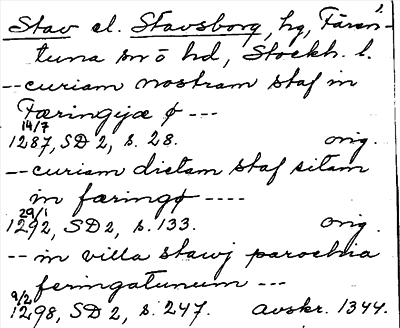 Stav el. Stavsborg, hg, Fären-
tuna sn o hd, Stockh. l.
-- curiam nostram staf in
Færingijæ ø ---
14/7
1287, SD 2, s. 28. orig.
-- curiam dictam staf sitam
in færingø ----
29/1
1292, SD 2, s. 133. orig.
-- in villa stawj parochia
feringatunum ---
9/2
1298, SD 2, s. 247. avskr. 1344.